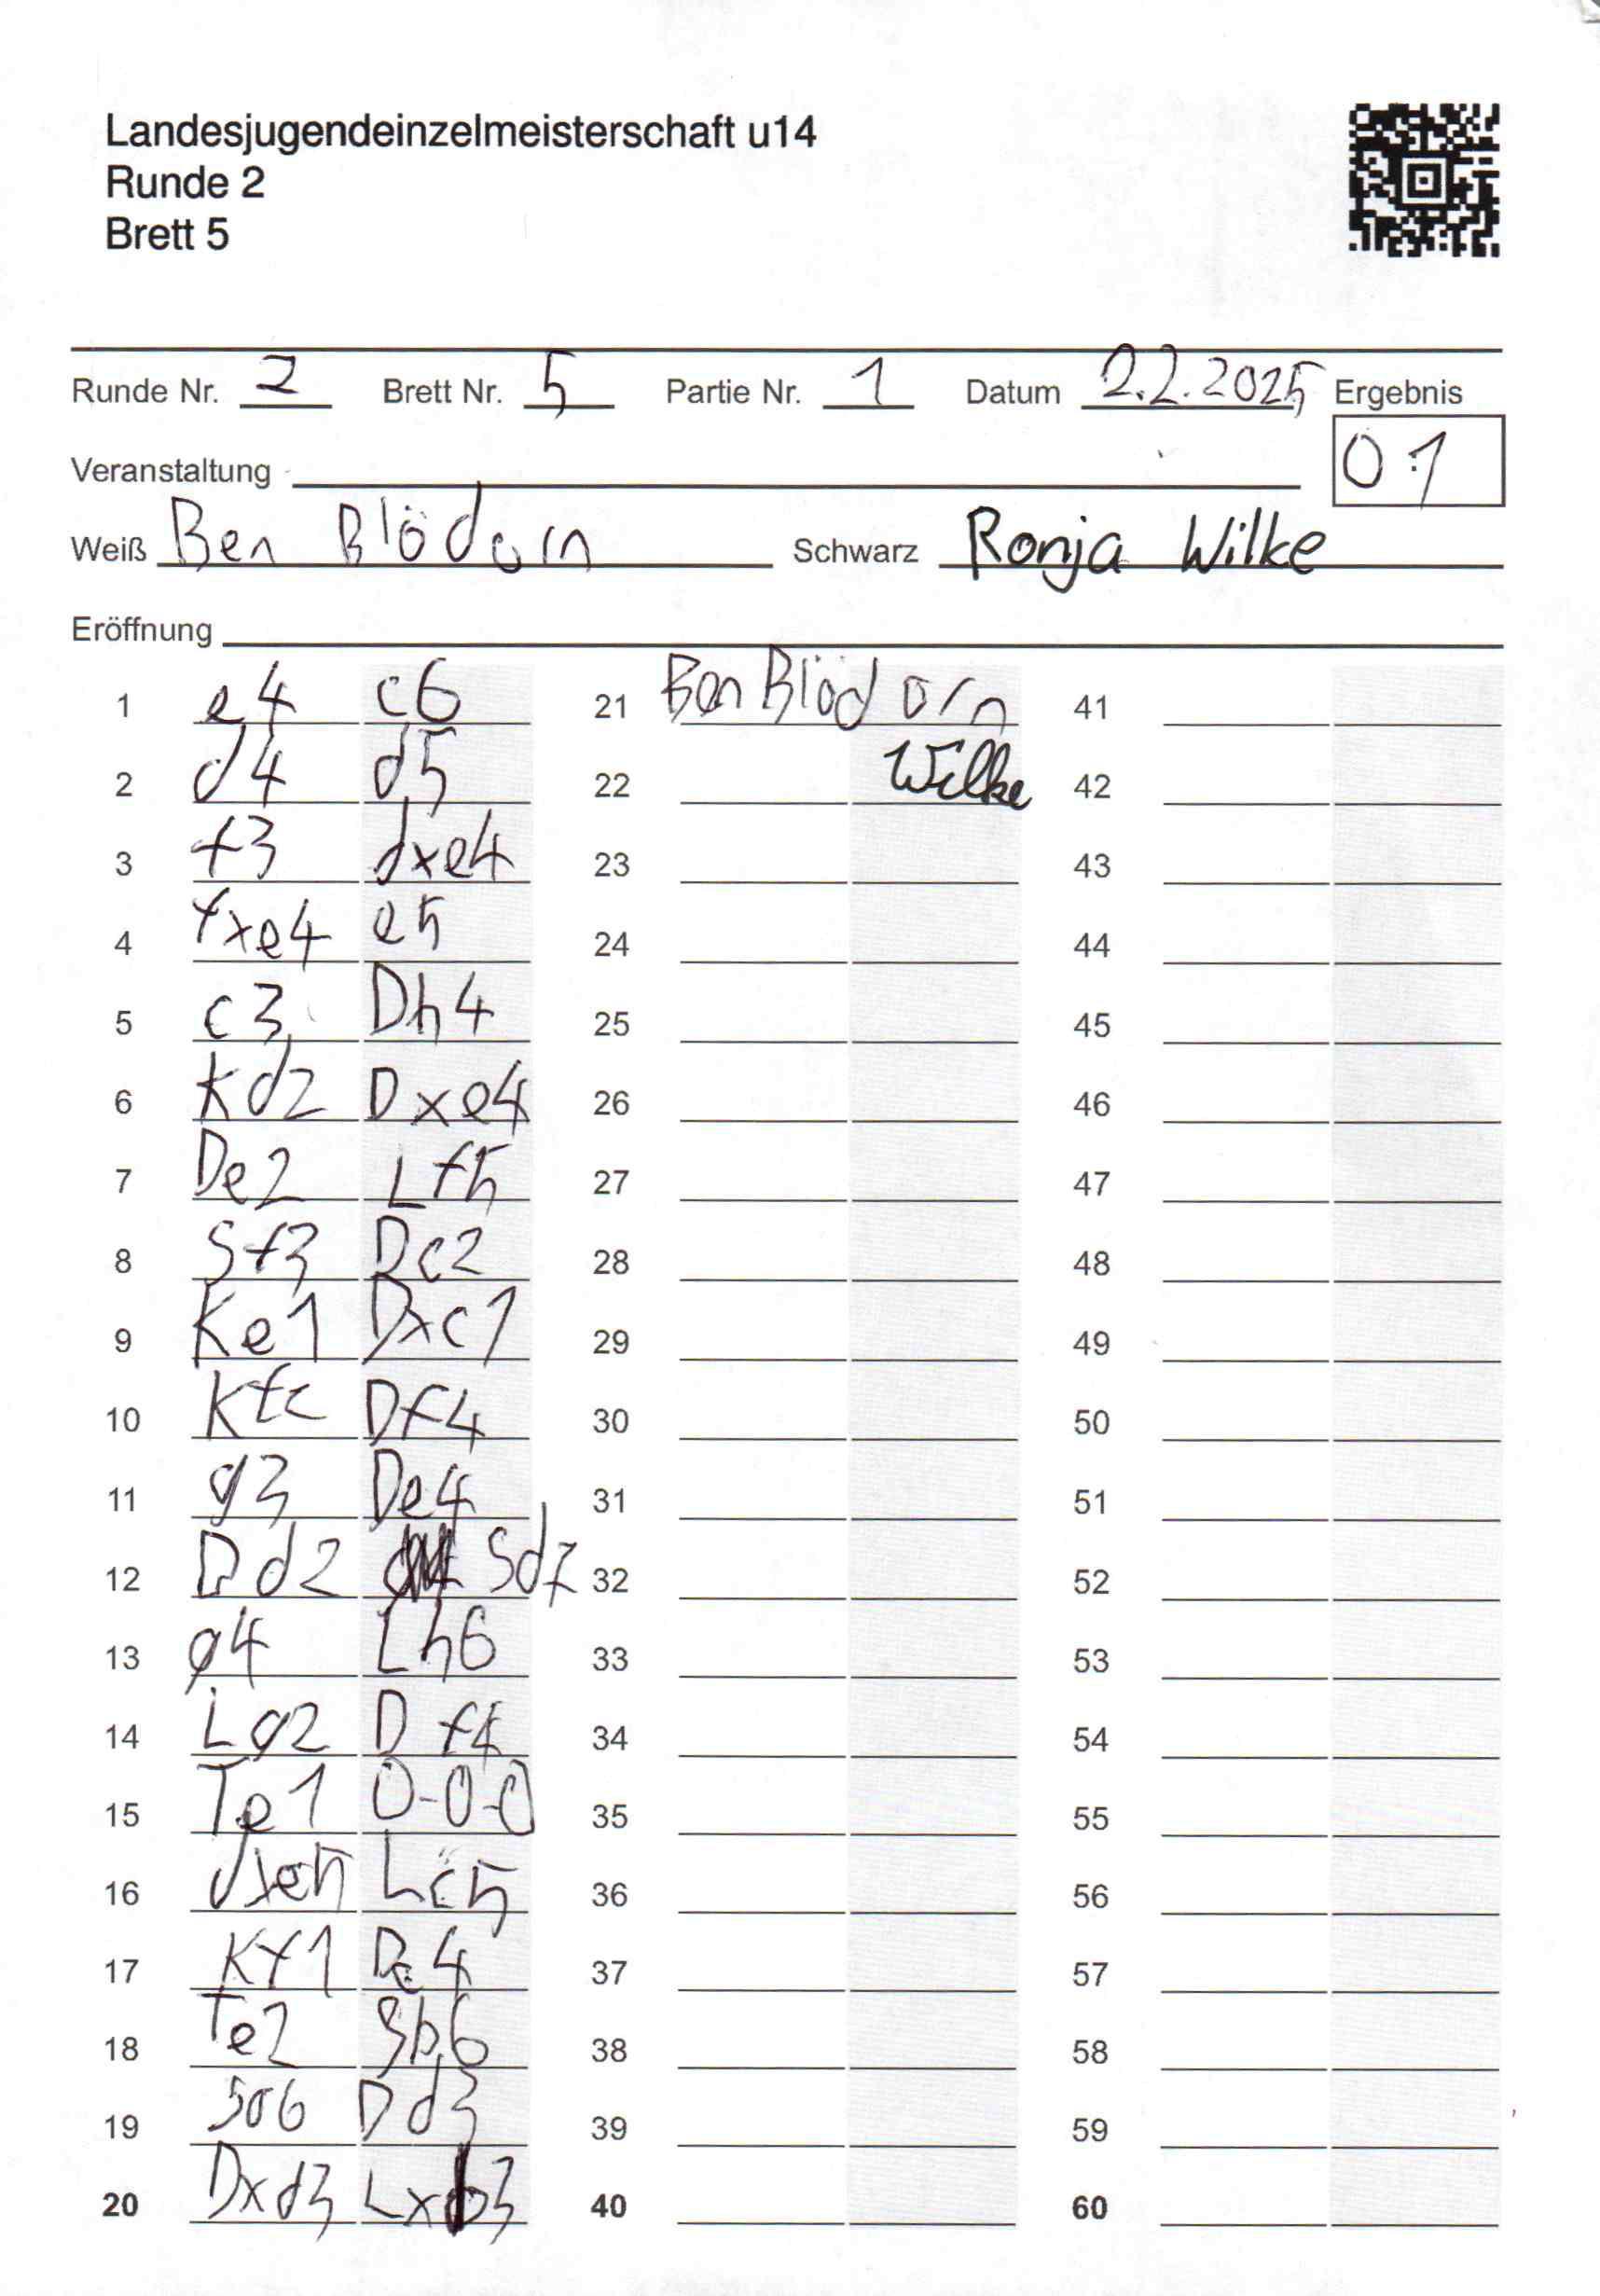 Landesjugendeinzelmeisterschaft u14
Runde 2
Brett 5
Runde Nr. 2 Brett Nr. 5 Partie Nr. 1 Datum 2.2.2025 Ergebnis
Veranstaltung 0:1
Weiß Ben Blödorn Schwarz Ronja Wilke
Eröffnung
1 e4 c6 21 Ben Blödorn 41
2 d4 d5 22 Wilke 42
3 f3 dxe4 23 43
4 fxe4 e5 24 44
5 c3 Dh4 25 45
6 Kd2 Dxe4 26 46
7 De2 Lf5 27 47
8 Sf3 Dc2 28 48
9 Ke1 Dxc1 29 49
10 Kf2 Df4 30 50
11 g3 De4 31 51
12 Dd2 Sd7 32 52
13 g4 Lh6 33 53
14 Lg2 Df4 34 54
15 Te1 0-0-0 35 55
16 dxe5 Lc5 36 56
17 Kf1 Dc4 37 57
18 Te2 Sb6 38 58
19 39 Dd3 59
20 Dxd3 Lxd3 40 60